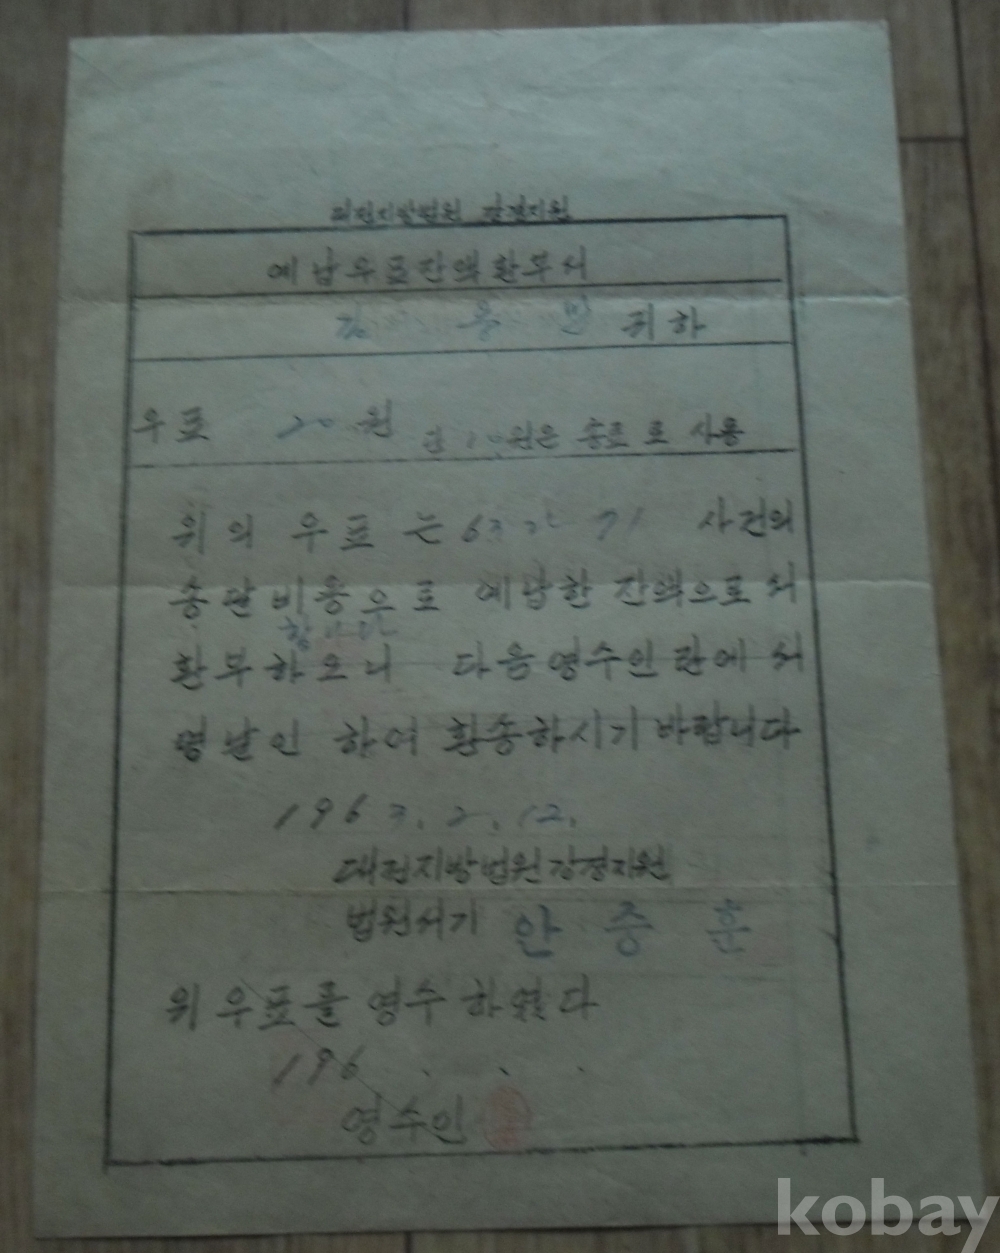 대전지방법원 강경지원
예납우표잔액환부서
김 용 만 귀하
우표 20원 단 10원은 송료로 사용
위의 우표는 63 71 사건의
송달비용으로 예납한 잔액으로서
합니다
환부하오니 다음영수인란에 서
명날인 하여 환송하시기 바랍니다
1963. 2. 12.
대전지방법원강경지원
법원서기 안 중 훈
위 우표를 영수 하였다
196 . . .
영수인
kobay